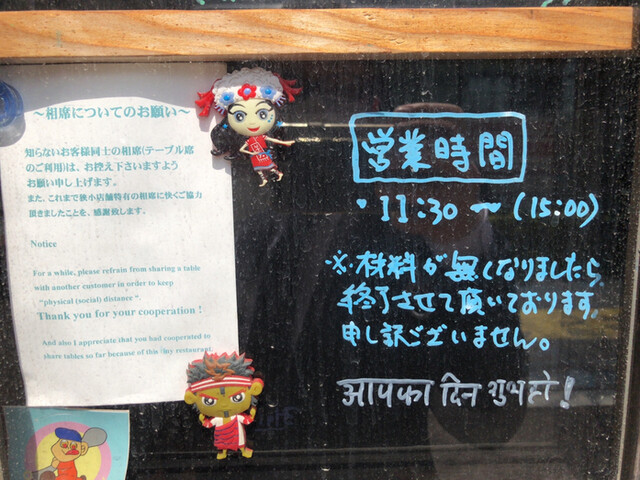 ～相席についてのお願い～
知らないお客様同士の相席(テーブル席
のご利用)は、お控え下さいますよう
お願い申し上げます。
また、これまで狭小店舗特有の相席に快くご協力
頂きましたことを、感謝致します。
Notice
For a while, please refrain from sharing a table
with another customer in order to keep
"physical (social) distance".
Thank you for your cooperation !
And also I appreciate that you had cooperated to
share tables so far because of this tiny restaurant.
営業時間
・11:30～(15:00)
※材料が無しなりましたら
終了させて頂いております。
申し訳ございません。
आपका दिन शुभ हो!